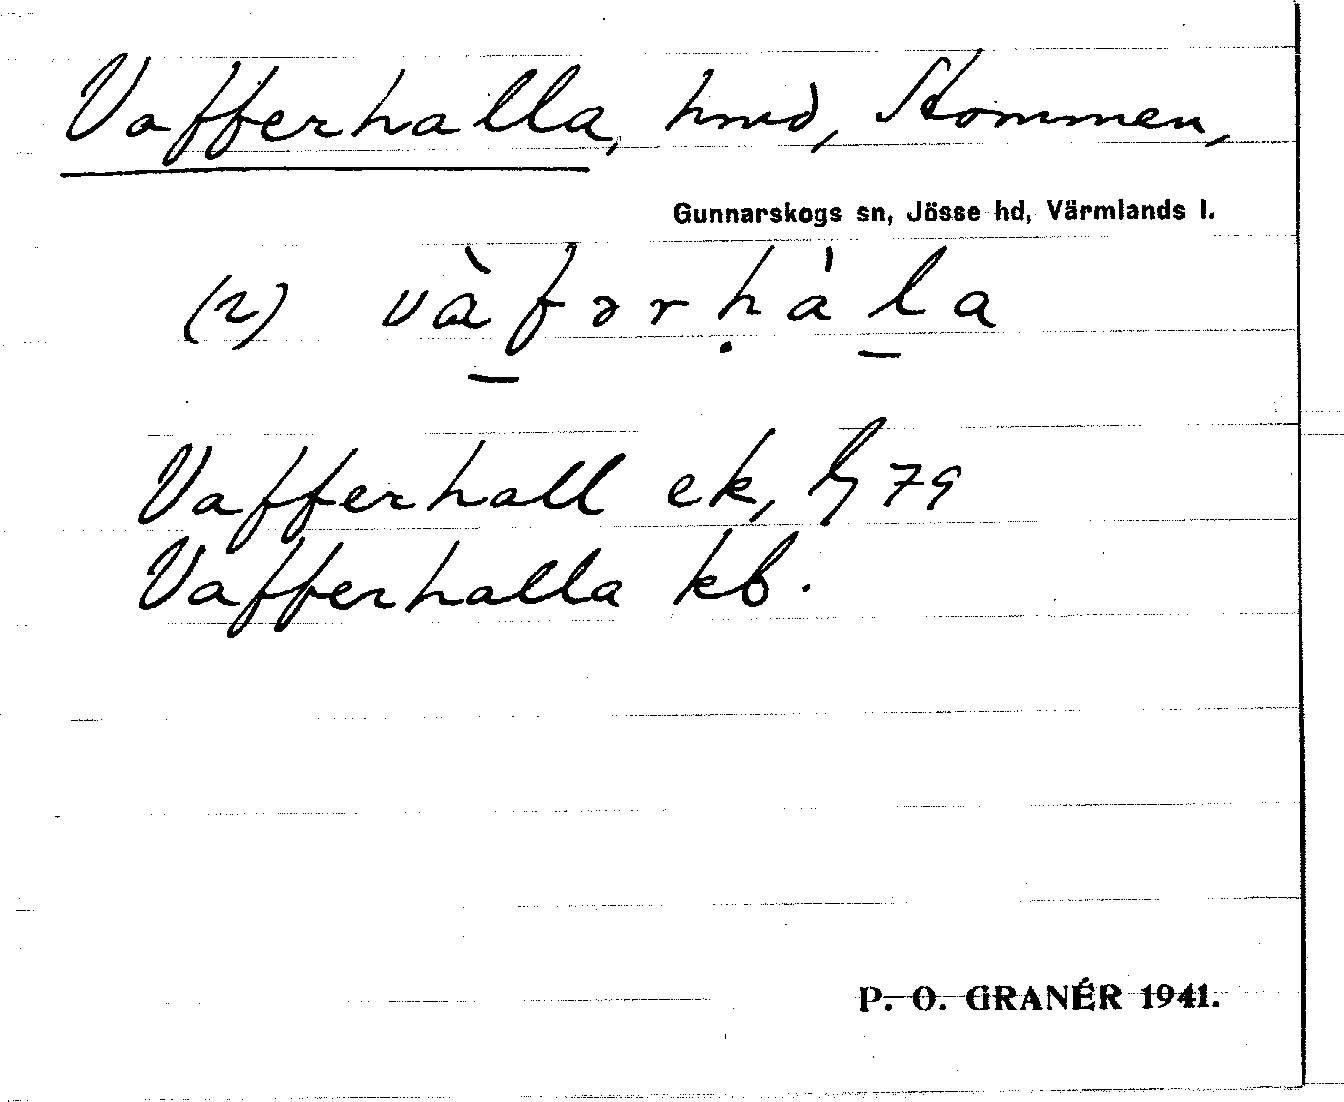 Vafferhalla, hmd, Stommen,
Gunnarskogs sn, Jösse hd, Värmlands l.
(2) và̠fərḥàl̠a
Vafferhall ek, 79
Vafferhalla kb.
P. O. GRANÉR 1941.